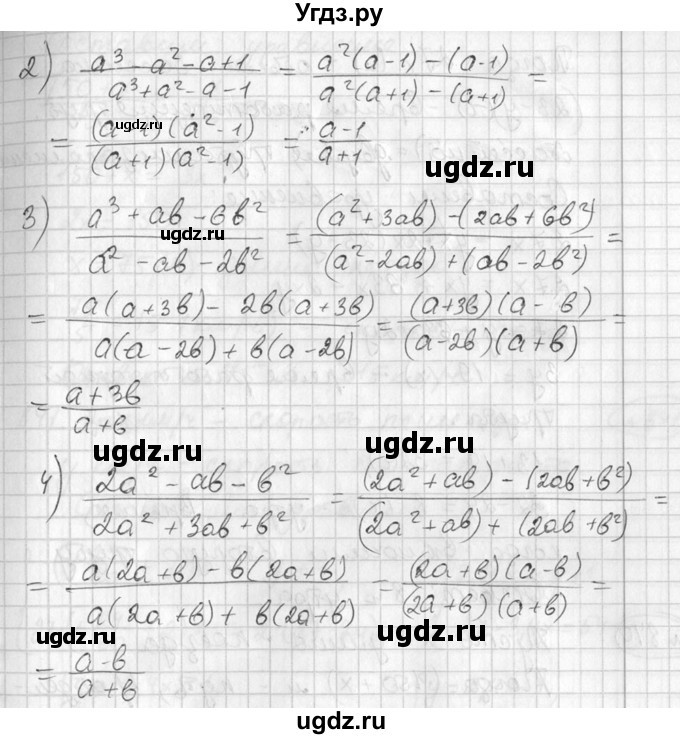 Угдз.ру
2) (a³ - a² - a + 1)/(a³ + a² - a - 1) = (a²(a-1) - (a-1))/(a²(a+1) - (a+1)) =
ugdz.ru
= ((a-1)(a²-1))/((a+1)(a²-1)) = (a-1)/(a+1)
ugdz.ru
3) (a³ + ab - 6b²)/(a² - ab - 2b²) = ((a² + 3ab) - (2ab + 6b²))/((a² - 2ab) + (ab - 2b²)) =
ugdz.ru
= (a(a+3b) - 2b(a+3b))/(a(a-2b) + b(a-2b)) = ((a+3b)(a- b))/((a-2b)(a+b)) =
= (a+3b)/(a+b)
ugdz.ru
ugdz.ru
4) (2a² - ab - b²)/(2a² + 3ab + b²) = ((2a² + ab) - (2ab + b²))/((2a² + ab) + (2ab + b²)) =
= (a(2a+b) - b(2a+b))/(a(2a+b) + b(2a+b)) = ((2a+b)(a-b))/((2a+b)(a+b)) =
ugdz.ru
ugdz.ru
= (a-b)/(a+b)
ugdz.ru